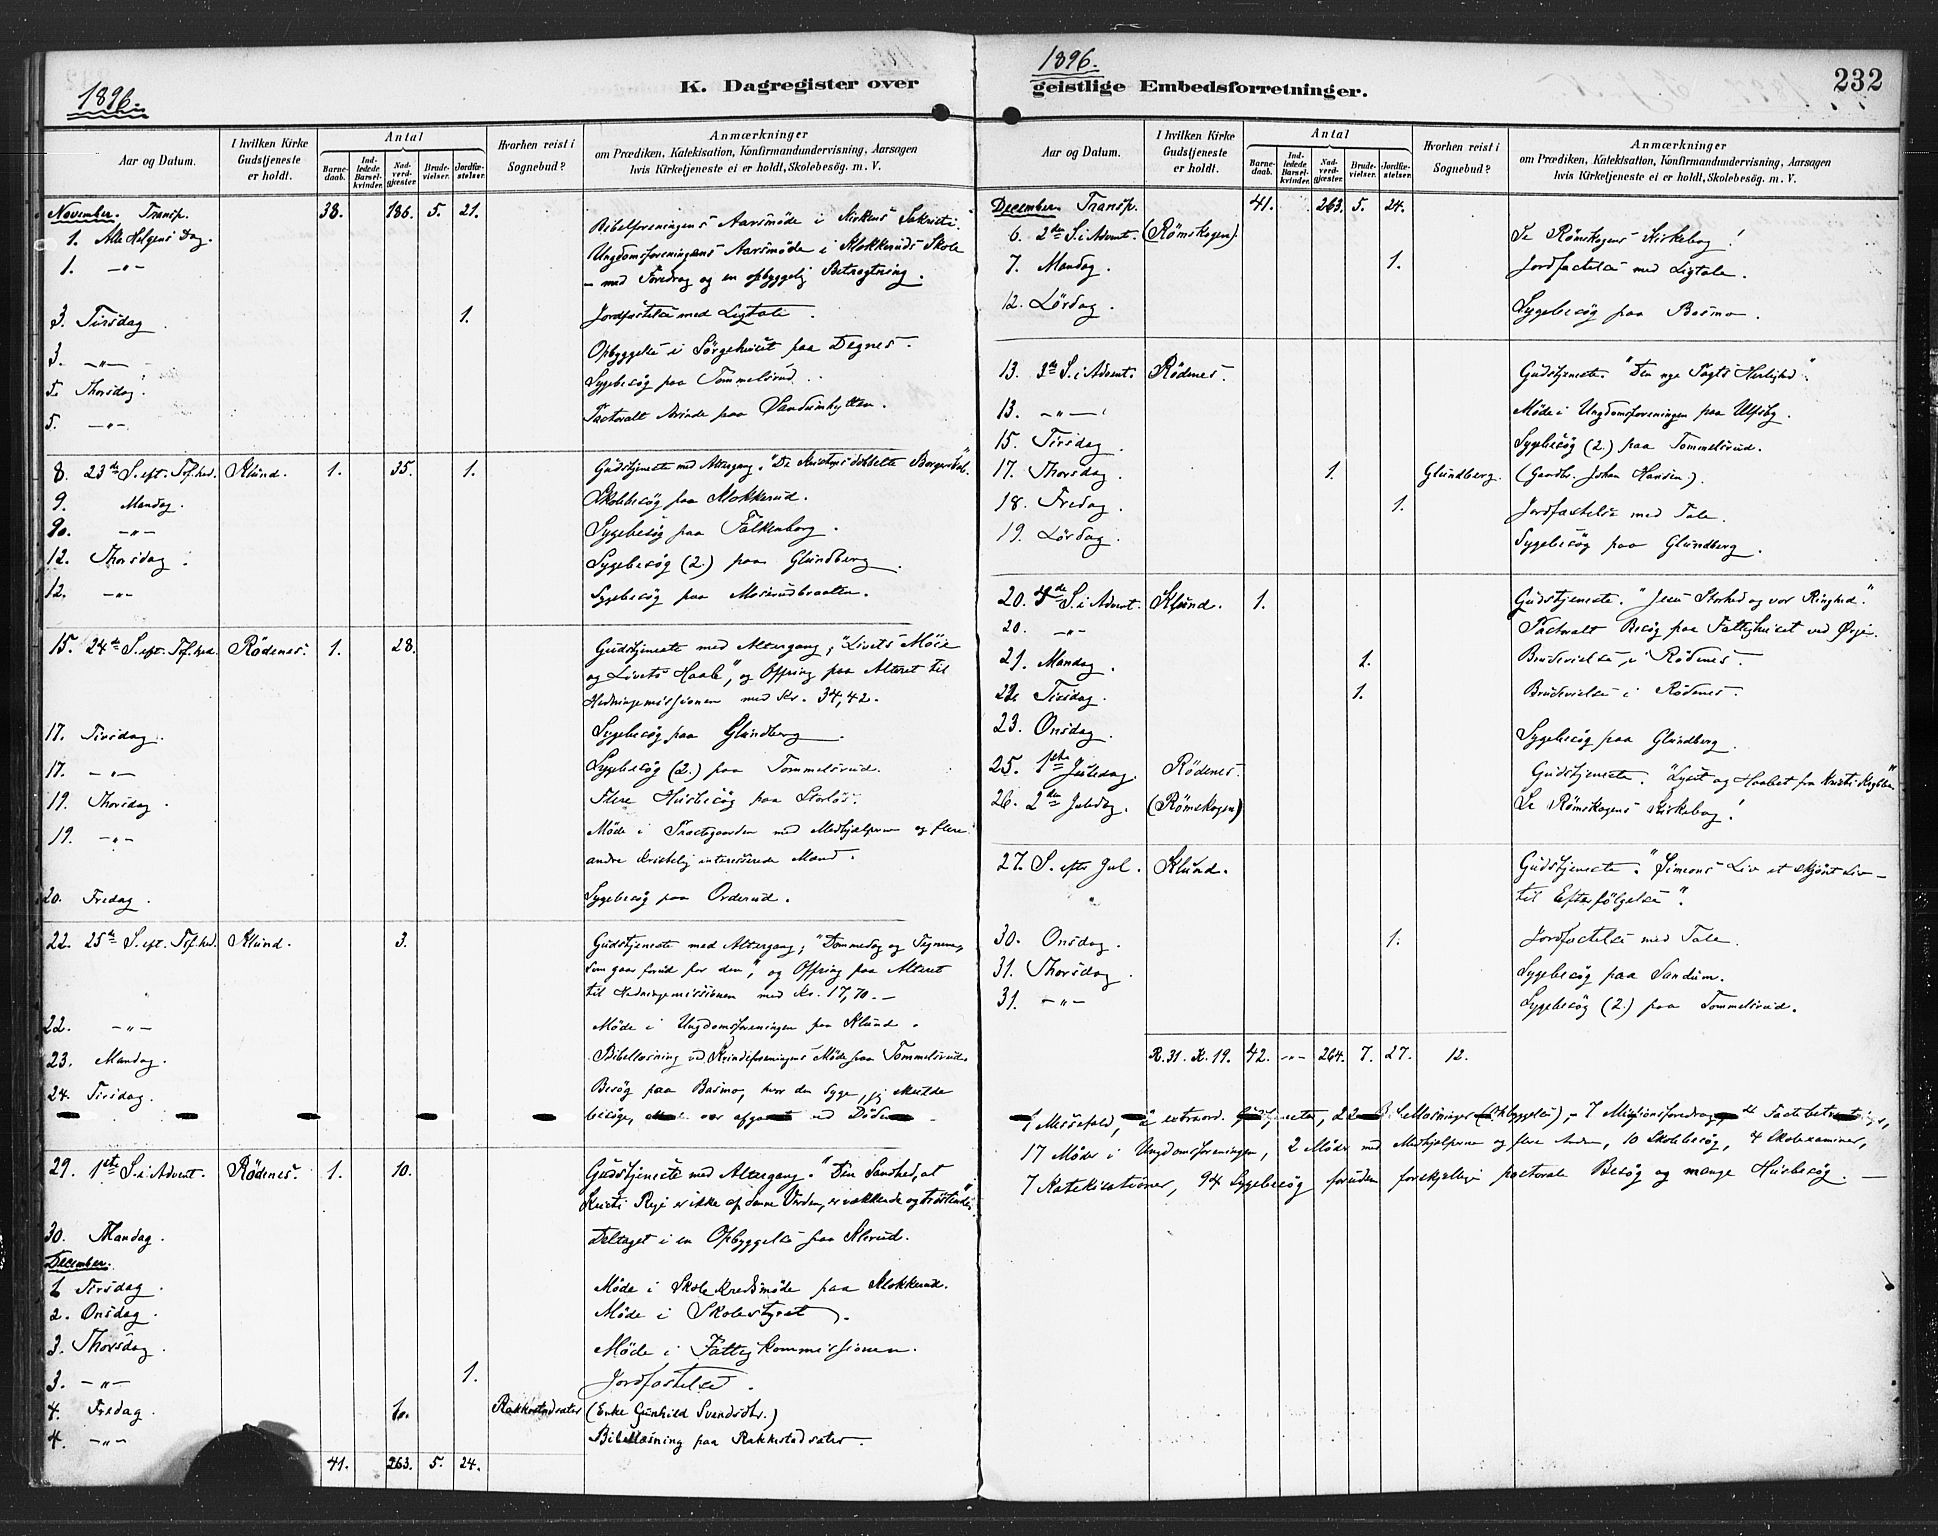 1896.
K. Dagregister over
Aar og Datum.
I hvilken Kirke Gudstjeneste er holdt.
Antal
Barnedaab.
Indledede Barselkvinder.
Nadverdgjæster
Brudevielser.
Jordfæstelser.
Hvorhen reist i Sognebud?
Anmærkninger
om Prædiken, Katekisation, Konfirmandundervisning, Aarsagen
hvis Kirketjeneste ei er holdt, Skolebesög. m. V.
November. Transp. 38. 186. 5. 21.
1. Alle Helgens Dag. Bibelforeningens Aarsmöde i Kirkens Sakristi.
1. -"- Ungdomsforeningens Aarsmöde i Klokkeruds Skole
- med Foredrag og en opbyggelig Betragtning.
3. Tirsdag. 1. Jordfæstelse med Ligtale.
3. -"- Opbyggelse i Sörgehuset paa Degnes.
5. Thorsdag. Sygebesög paa Tommelsrud.
5. -"- Pastoralt Ærinde paa Sandumhytten.
8. 23de S. eft. Tref.hed. Klund. 1. 35. 1. Gudstjeneste med Altergang. "De Kristnes dobbelte Borgerskab."
9. Mandag. Skolebesög paa Klokkerud.
90. -"- Sygebesög paa Falkenborg.
12. Thorsdag. Sygebesög (2.) paa Glundberg.
12. -"- Sygebesög paa Moserudbraaten.
15. 24de S. eft. Tref.hed. Rödenes. 1. 28. Gudstjeneste med Altergang, "Livets Möie
og Livets Haab", og Offring paa Alteret til
Hedningemissionen med Kr. 34,42.
17. Tirsdag. Sygebesög paa Glundberg.
17. -"- Sygebesög (2.) paa Tommelsrud.
19. Thorsdag. Flere Husbesög paa Storlös.
19. -"- Möde i Præstegaarden med Medhjælperne og flere
andre kristelig interesserede Mænd.
20. Fredag. Sygebesög paa Orderud.
22. 25de S. eft. Tref.hed. Klund. 3. Gudstjeneste med Altergang, "Dommedag og Tegnene,
som gaar forud for den", og Offring paa Alteret
til Hedningemissionen med Kr. 17,70.-
22. -"- Möde i Ungdomsforeningen paa Klund.
23. Mandag. Bibellæsning ved Kvindeforeningens Möde paa Tommelsrud.
24. Tirsdag. Besög paa Basmo, hvor den Syge, jeg skulde
besöge, var afgaaet ved Döden.
29. 1ste S. i Advent. Rödenes. 1. 10. Gudstjeneste med Altergang. "Den Sandhed, at
Kristi Rige er ikke af denne Verden, er vækkende og tröstende".
30. Mandag. Deltaget i en Opbyggelse paa Slerud.
December.
1. Tirsdag. Möde i Skolekredsmöde paa Klokkerud.
2. Onsdag. Möde i Skolestyret.
3. Thorsdag. Möde i Fattigkommissionen.
3. -"- 1. Jordfæstelse.
4. Fredag. 10. Rakkestadsæter (Enke Gunhild Svendsdtr.)
4. -"- Bibellæsning paa Rakkestadsæter.
41. 263. 5. 24.
1896.
geistlige Embedsforretninger.
232
Aar og Datum.
I hvilken Kirke Gudstjeneste er holdt.
Antal
Barnedaab.
Indledede Barselkvinder.
Nadverdgjæster.
Brudevielser.
Jordfæstelser.
Hvorhen reist i Sognebud?
Anmærkninger
om Prædiken, Katekisation, Konfirmandundervisning, Aarsagen
hvis Kirketjeneste ei er holdt, Skolebesög. m. V.
December. Transp. 41. 263. 5. 24.
6. 2den S. i Advent. (Römskogen). Se Römskogens Kirkebog!
7. Mandag. 1. Jordfæstelse med Ligtale.
12. Lördag. Sygebesög paa Basmo.
13. 3die S. i Advent. Rödenes. Gudstjeneste. "Den nye Pagts Herlighed".
13. -"- Möde i Ungdomsforeningen paa Ulfsby.
15. Tirsdag. Sygebesög (2.) paa Tommelsrud.
17. Thorsdag. 1. Glundberg. (Gaardbr. Johan Hansen.).
18. Fredag. 1. Jordfæstelse med Tale.
19. Lördag. Sygebesög paa Glundberg.
20. 4de S. i Advent. Klund. 1. Gudstjeneste. "Jesu Storhed og vor Ringhed."
20. -"- Pastoralt Besög paa Fattighuset ved Ørje.
21. Mandag. 1. Brudevielse i Rödenes.
22. Tirsdag. 1. Brudevielse i Rödenes.
23. Onsdag. Sygebesög paa Glundberg.
25. 1ste Juledag. Rödenes. Gudstjeneste. "Lyset og Haabet fra Kristi Krybbe."
26. 2den Juledag. (Römskogen) Se Römskogens Kirkebog!
27. S. efter Jul. Klund. Gudstjeneste. "Simeons Liv et skjönt Liv -
til Efterfölgelse".
30. Onsdag. 1. Jordfæstelse med Tale.
31. Thorsdag. Sygebesög paa Sandum.
31. -"- Sygebesög (2.) paa Tommelsrud.
R. 31. K. 19. 42. -"- 264. 7. 27. 12.
1 Messefald, 2 extraord. Gudstjenester, 22 Bibellæsninger (Opbyggelse), 7 Missionsforedrag, 4 Fastebetragtninger,
17 Möder i Ungdomsforeningen, 2 Möder med Medhjælperne og flere Andre, 10 Skolebesög, 4 Skoleexaminer,
7 Katekisationer, 94 Sygebesög foruden forskjellige pastorale Besög og mange Husbesög. -